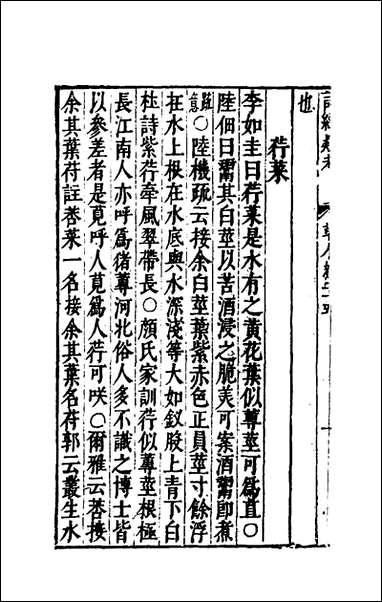 也
荇菜
李如圭曰荇菜是水有之黃花葉似蓴莖可為苴○
陸佃曰鬻其白莖以苦酒浸之脆美可案酒鬻即煮
疏意○陸機疏云接余白莖葉紫赤色正員莖寸餘浮
在水上根在水底與水深淺等大如釵股上青下白
杜詩紫荇牽風翠帶長○顏氏家訓荇似蓴莖根極
長江南人亦呼爲猪蓴河北俗人多不識之博士皆
以參差者是莧呼人莧爲人荇可咲○爾雅云莕接
余其葉苻註莕菜一名接余其葉名苻郭云叢生水